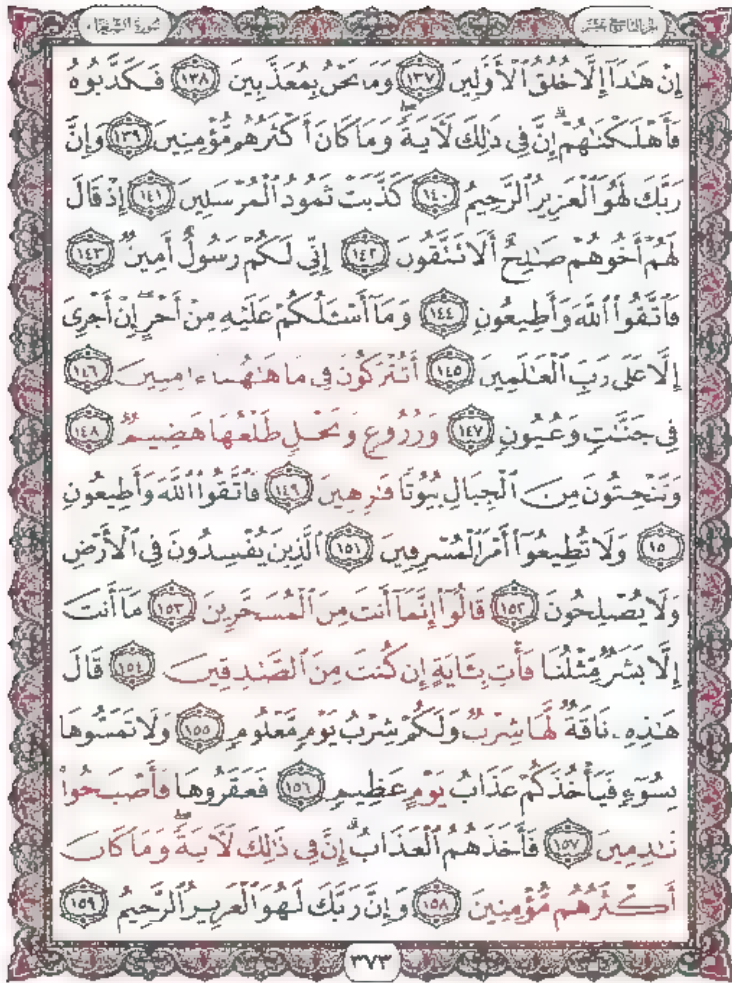 سُورَةُ الشُّعَرَاءِ
الجزء التاسع عشر
إِنْ هَٰذَآ إِلَّا خُلُقُ ٱلْأَوَّلِينَ ١٣٧ وَمَا نَحْنُ بِمُعَذَّبِينَ ١٣٨ فَكَذَّبُوهُ
فَأَهْلَكْنَٰهُمْ ۗ إِنَّ فِى ذَٰلِكَ لَءَايَةً ۖ وَمَا كَانَ أَكْثَرُهُم مُّؤْمِنِينَ ١٣٩ وَإِنَّ
رَبَّكَ لَهُوَ ٱلْعَزِيزُ ٱلرَّحِيمُ ١٤٠ كَذَّبَتْ ثَمُودُ ٱلْمُرْسَلِينَ ١٤١ إِذْ قَالَ
لَهُمْ أَخُوهُمْ صَٰلِحٌ أَلَا تَتَّقُونَ ١٤٢ إِنِّى لَكُمْ رَسُولٌ أَمِينٌ ١٤٣
فَٱتَّقُوا۟ ٱللَّهَ وَأَطِيعُونِ ١٤٤ وَمَآ أَسْـَٔلُكُمْ عَلَيْهِ مِنْ أَجْرٍ ۖ إِنْ أَجْرِىَ
إِلَّا عَلَىٰ رَبِّ ٱلْعَٰلَمِينَ ١٤٥ أَتُتْرَكُونَ فِى مَا هَٰهُنَآ ءَامِنِينَ ١٤٦
فِى جَنَّٰتٍ وَعُيُونٍ ١٤٧ وَزُرُوعٍ وَنَخْلٍ طَلْعُهَا هَضِيمٌ ١٤٨
وَتَنْحِتُونَ مِنَ ٱلْجِبَالِ بُيُوتًا فَٰرِهِينَ ١٤٩ فَٱتَّقُوا۟ ٱللَّهَ وَأَطِيعُونِ
١٥٠ وَلَا تُطِيعُوٓا۟ أَمْرَ ٱلْمُسْرِفِينَ ١٥١ ٱلَّذِينَ يُفْسِدُونَ فِى ٱلْأَرْضِ
وَلَا يُصْلِحُونَ ١٥٢ قَالُوٓا۟ إِنَّمَآ أَنتَ مِنَ ٱلْمُسَحَّرِينَ ١٥٣ مَآ أَنتَ
إِلَّا بَشَرٌ مِّثْلُنَا فَأْتِ بِـَٔايَةٍ إِن كُنتَ مِنَ ٱلصَّٰدِقِينَ ١٥٤ قَالَ
هَٰذِهِۦ نَاقَةٌ لَّهَا شِرْبٌ وَلَكُمْ شِرْبُ يَوْمٍ مَّعْلُومٍ ١٥٥ وَلَا تَمَسُّوهَا
بِسُوٓءٍ فَيَأْخُذَكُمْ عَذَابُ يَوْمٍ عَظِيمٍ ١٥٦ فَعَقَرُوهَا فَأَصْبَحُوا۟
نَٰدِمِينَ ١٥٧ فَأَخَذَهُمُ ٱلْعَذَابُ ۗ إِنَّ فِى ذَٰلِكَ لَءَايَةً ۖ وَمَا كَانَ
أَكْثَرُهُم مُّؤْمِنِينَ ١٥٨ وَإِنَّ رَبَّكَ لَهُوَ ٱلْعَزِيزُ ٱلرَّحِيمُ ١٥٩
٣٧٣